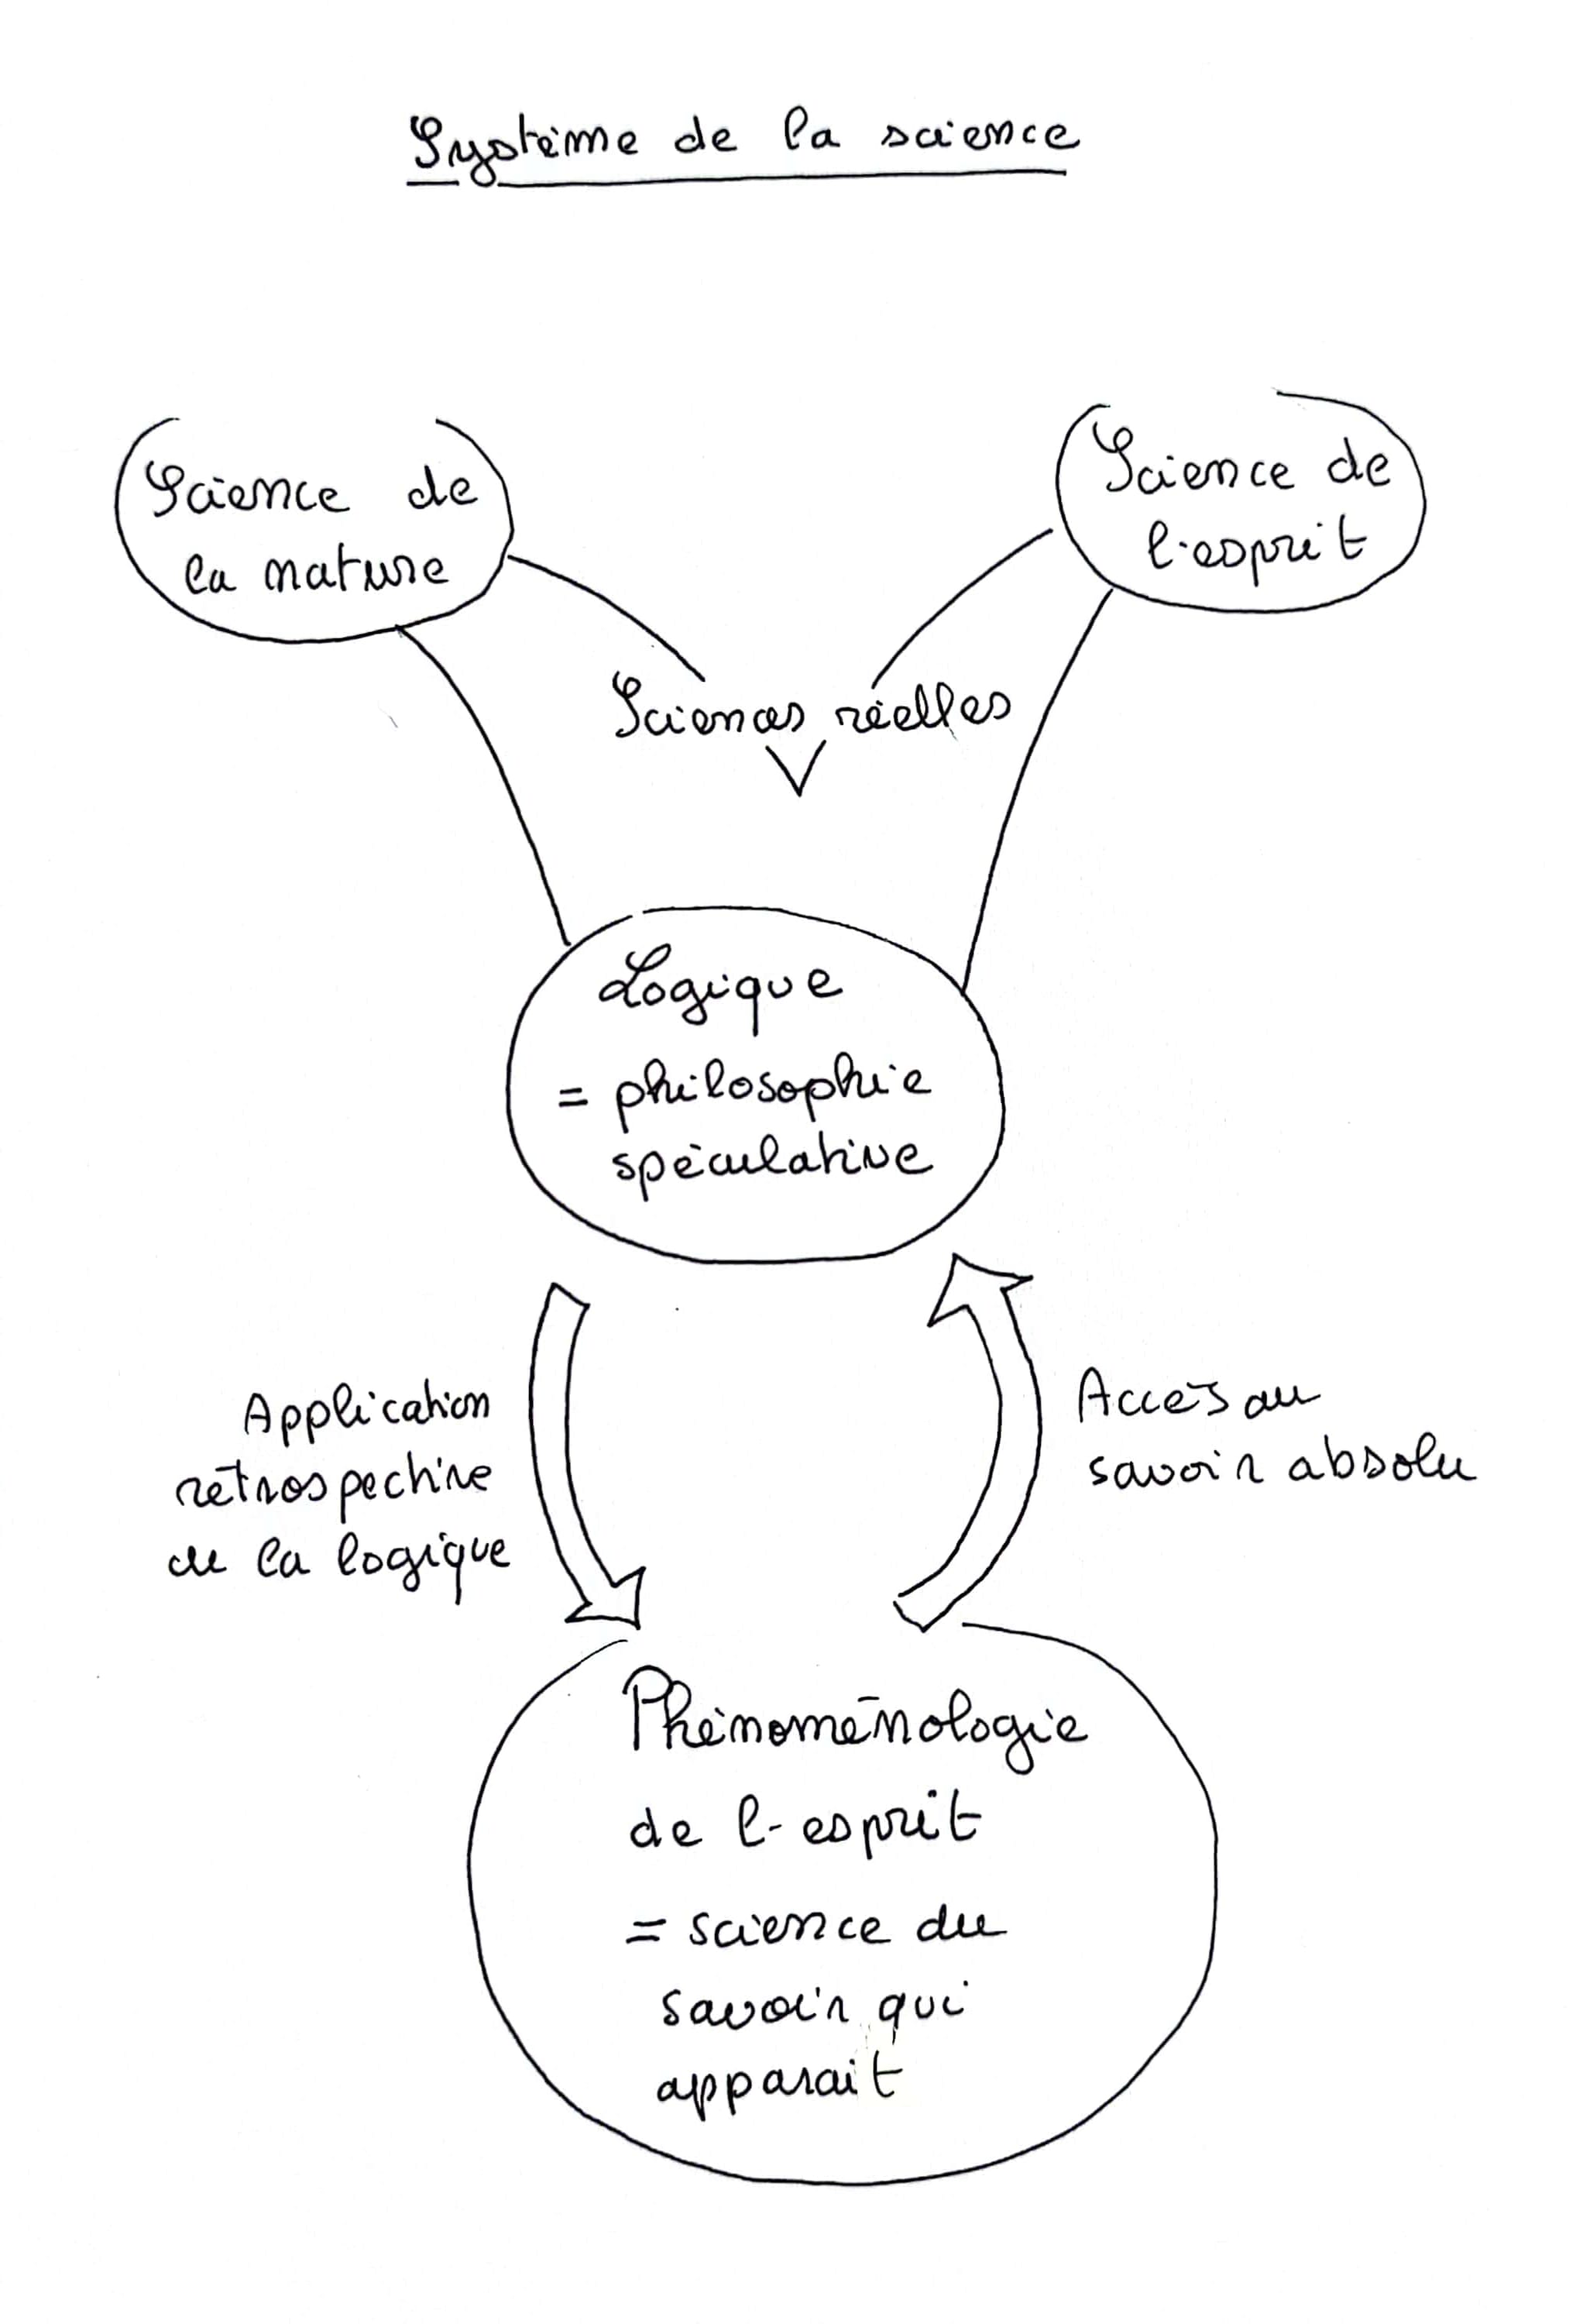 Système de la science
Science de
la nature
Science de
l'esprit
Sciences réelles
Logique
= philosophie
spéculative
Application
rétrospective
de la logique
Accès au
savoir absolu
Phénoménologie
de l'esprit
= science du
savoir qui
apparait